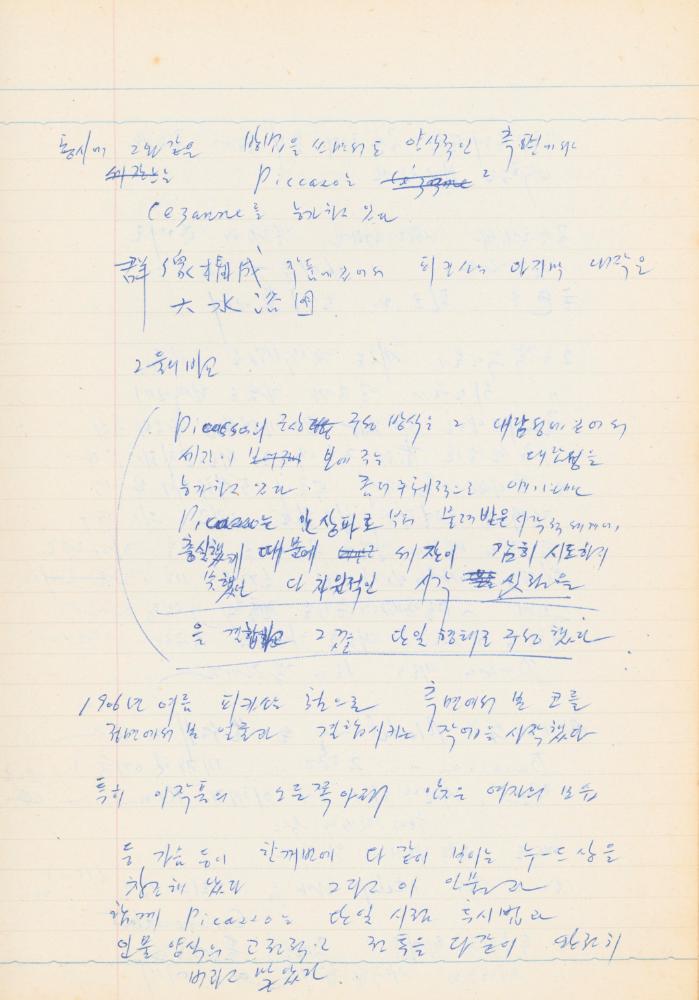 동시에 그와 같은 방법을 쓰면서도 양식적인 측면에서
Piccaso는
Cezanne를 능가하고 있다
群像構成 작품에 있어서 피카소의 마지막 대작은
大水浴図
그 둘의 비교
Picasso의 군상 구성 방식은 그 대담성에 있어서
세잔이 보여주는 대담성을
능가하고 있다 좀더 구체적으로 얘기하면
Picasso는 인상파로부터 물려받은 시각적 세계에
충실했기 때문에 세잔이 감히 시도하지
못했던 다차원적인 시각
을 결합하고 그것을 단일 형태로 구성했다
1906년 여름 피카소는 처음으로 측면에서 본 코를
정면에서 본 얼굴과 결합시키는 작업을 시작했다
특히 이 작품의 오른쪽 아래 앉은 여자의 모습
등, 가슴 등이 한꺼번에 다 같이 보이는 누드상을
창조해 냈다 그리고 이 인물과
함께 Picasso는 단일 시점 투시법과
인물 양식의 고전적인 전통을 다같이 완전히
버리고 말았다.